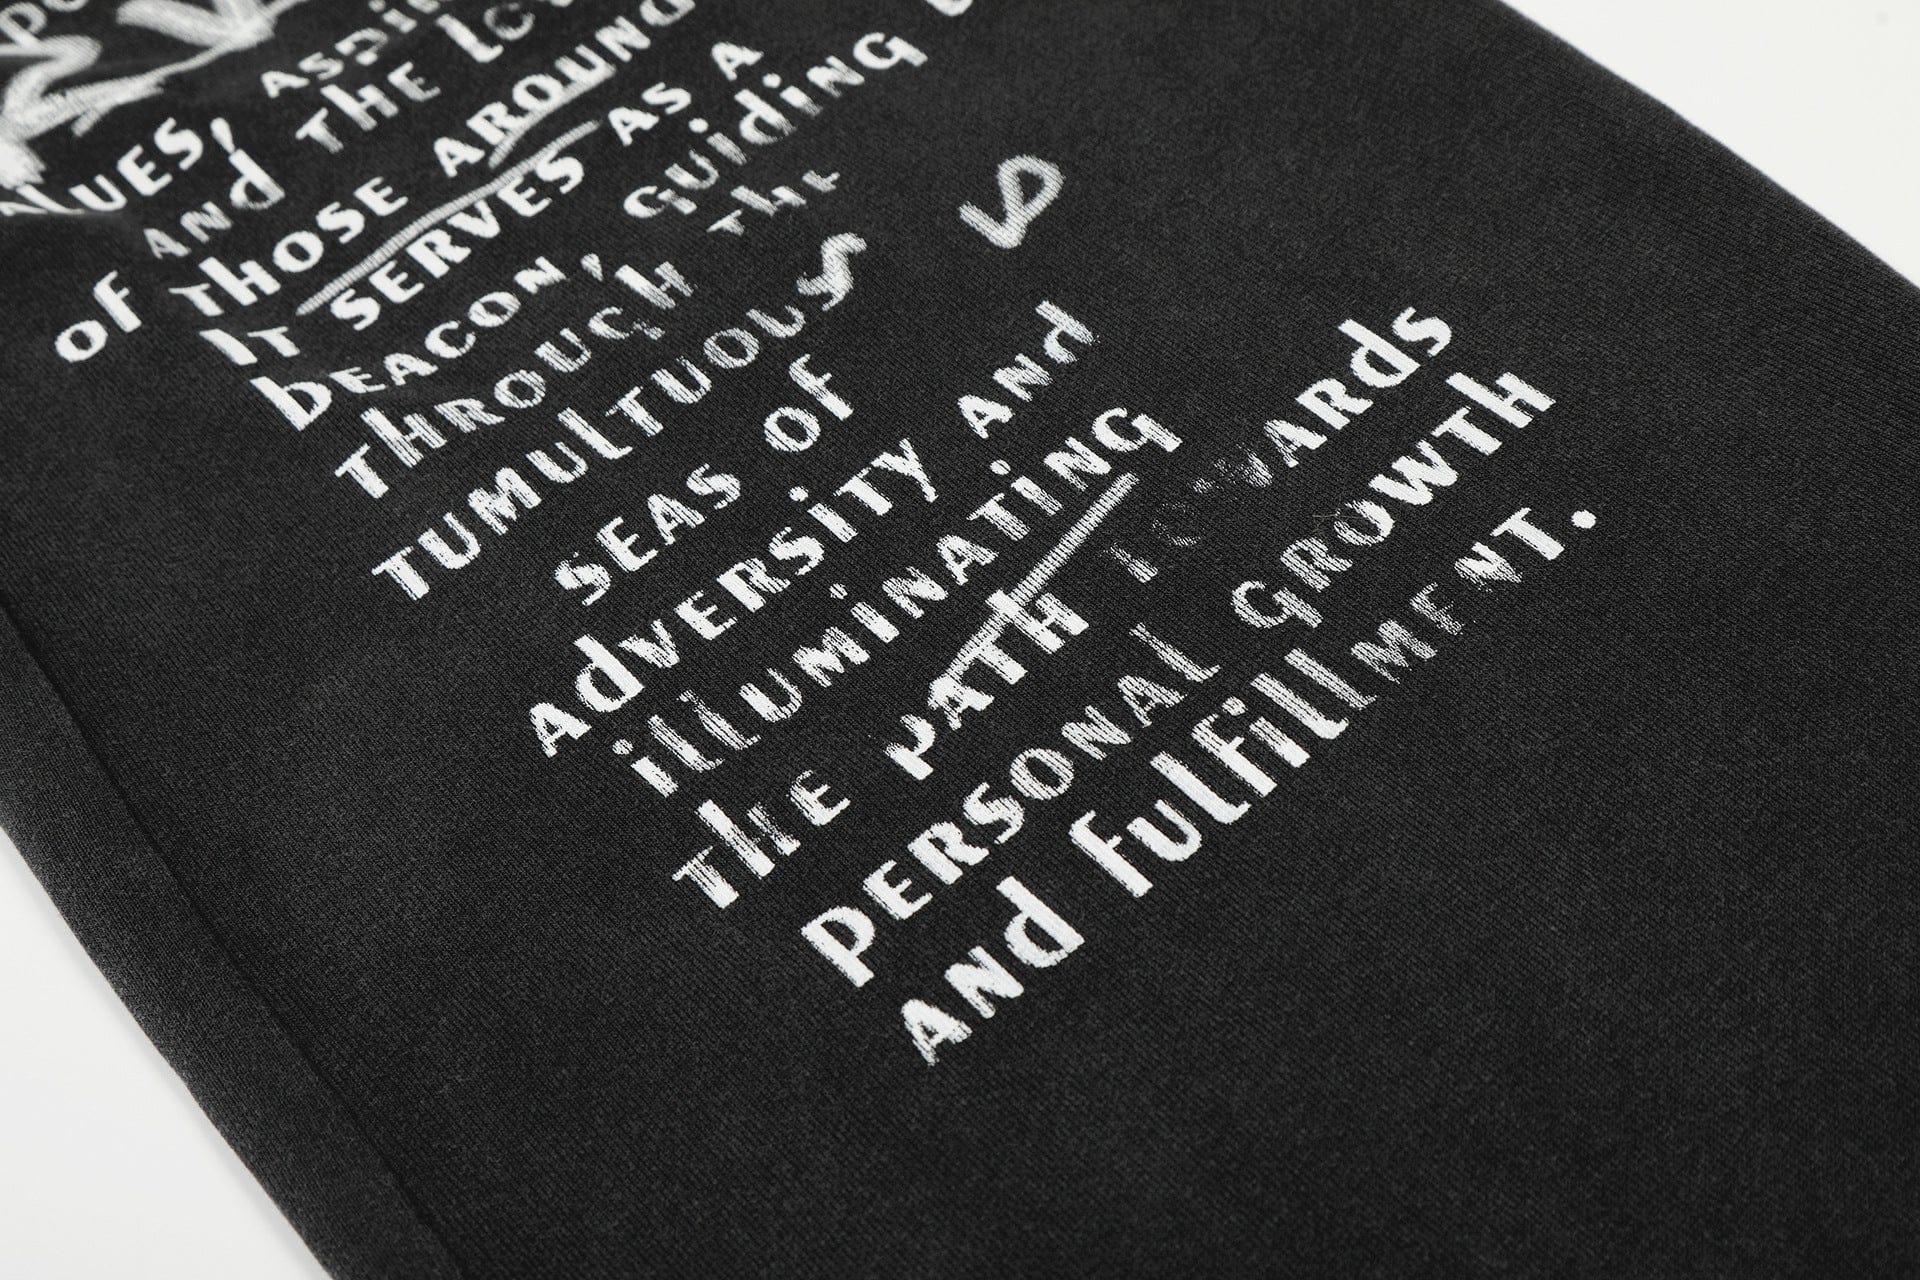 AND THE
OF THOSE AROUND
IT SERVES AS A
bEACON, GUidiNG
THROUGH THE
TUMUlTUOUS
SEAS OF
AdVERSiTY ANd
illUMiNATiNG
THE PATH TOWARds
PERSONAL GROWTH
ANd FUlFillMENT.